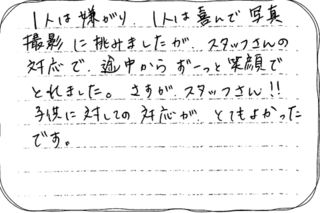 1人は嫌がり、1人は喜んで写真
撮影に挑みましたが、スタッフさんの
対応で、途中からずーっと笑顔で
とれました。さすがスタッフさん!!
子供に対しての対応が、とてもよかった
です。